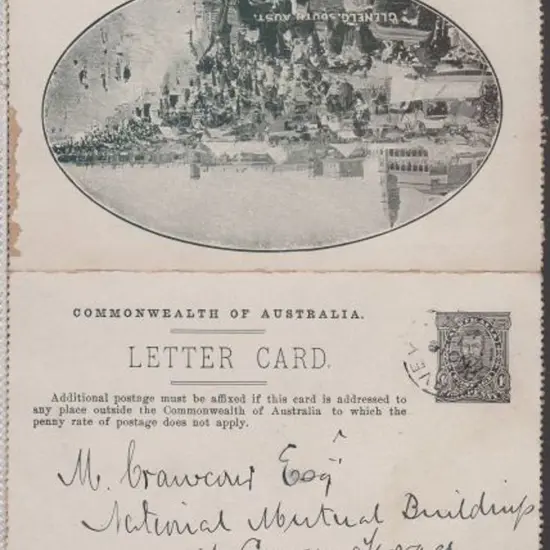 GLENELG, SOUTH AUST.
COMMONWEALTH OF AUSTRALIA.
LETTER CARD.
Additional postage must be affixed if this card is addressed to
any place outside the Commonwealth of Australia to which the
penny rate of postage does not apply.
M. Crawcour Esqr
National Mutual Buildings